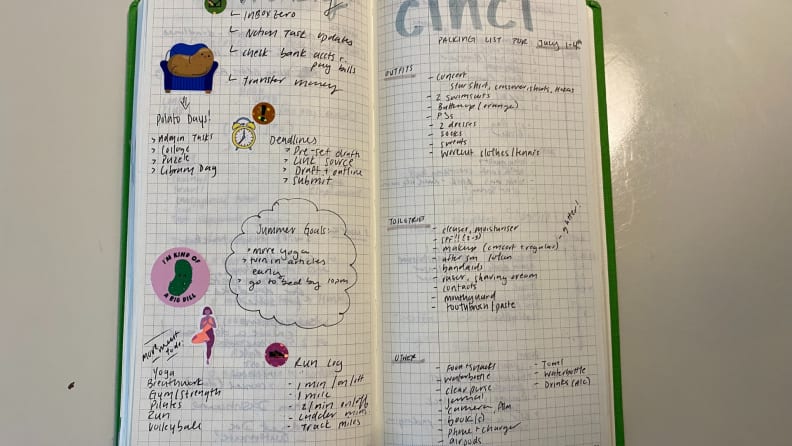 INBOX ZERO
Notion Task Updates
check bank accts +
pay bills
Transfer money
Potato Days!
> Admin Tasks
> Collage
> Puzzle
> Library Day
Deadlines
> Pre-set draft
> Link source
> Draft + outline
> Submit
Summer Goals:
> more yoga
> turn in articles
early
> go to bed by 10pm
I'M KIND OF
A BIG DILL
movement
to do:
Yoga
Breathwork
Gym/Strength
Pilates
Run
Volleyball
Run Log
- 1 min/on/off
- 1 mile
- 2/min on/off
- Ladder mins
- Track miles
cinci
PACKING LIST FOR July 1-4th
OUTFITS
- Concert
Star shirt, converse
- 2 swimsuits
- Button up (orange)
- PJs
- 2 dresses
- socks
- sweats
- workout clothes/tennis
TOILETRIES
- cleanser, moisturiser
- SPF!!
- makeup (concert + regular)
- glitter!
- after sun lotion
- bandaids
- razor, shaving cream
- contacts
- mouthguard
- toothbrush/paste
OTHER
- Food + snacks
- waterbottle
- clear purse
- journal
- camera, film
- book(s)
- phone + charger
- airpods
- Towel
- waterbottle
- Drinks (alc)